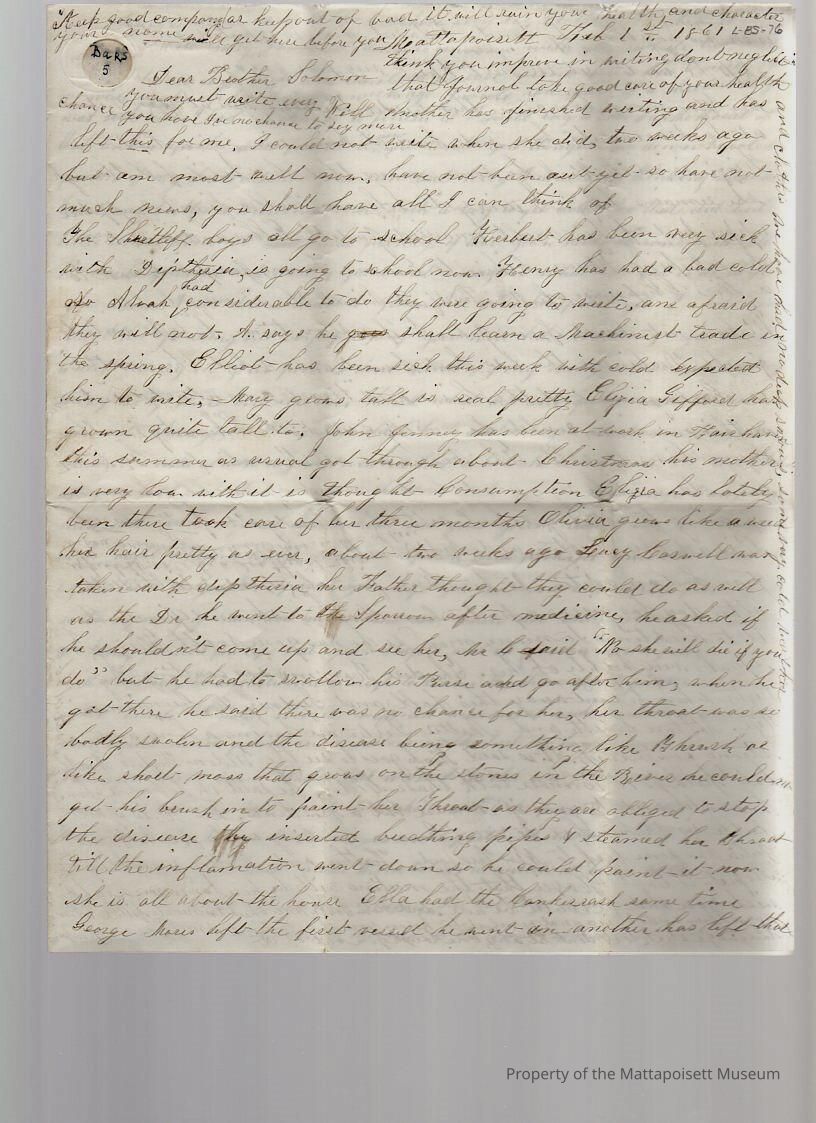 Keep good company or keep out of bad it will ruin your health and character
your name will get here before you Mattapoisett Feb 1st 1861 L-BS-76
Dans
5
think you improve in writing dont neglect
Dear Brother Solomon
that Journal take good care of your health
you must write every
chance you have Ive no chance to say more
Well Mother has finished writing and has
left this for me, I could not write when she did, two weeks ago
but am most well now, have not been out yet so have not
much news, you shall have all I can think of
The Shurtleff boys all go to school Herbert has been very sick
with Diptheria, is going to school now. Henry has had a bad cold
Noah had considerable to do they were going to write, am afraid
they will not. N. says he goes shall learn a Machinist trade in
the spring. Elliot has been sick this week with cold expected
him to write, Mary grows tall is real pretty Eliza Gifford has
grown quite tall to, John Jenney has been at work in Fairhaven
this summer as usual got through about Christmas his mother
is very low with it is thought Consumption Eliza has lately
been there took care of her three months Olivia grows like a weed
her hair pretty as ever, about two weeks ago Lucy Caswell was
taken with diptheria her Father thought they could do as well
as the Dr he went to the Sparrow after medicine, he asked if
he shouldn't come up and see her, Mr C said "No she will die if you
do" but he had to swollow his Purse and go after him, when he
got there he said there was no chance for her, her throat was so
badly swoln and the disease being something like Thrush or
like short moss that grows on the stones in the River he couldn't
get his brush in to paint her Throat as they are obliged to stop
the disease they inserted breathing pipes & steamed her throat
till the inflamation went down so he could paint it now
she is all about the house Ella had the Cankerrash same time
George left the first vessel he went in another has left that
and clothes we have had no
some say cold
Property of the Mattapoisett Museum